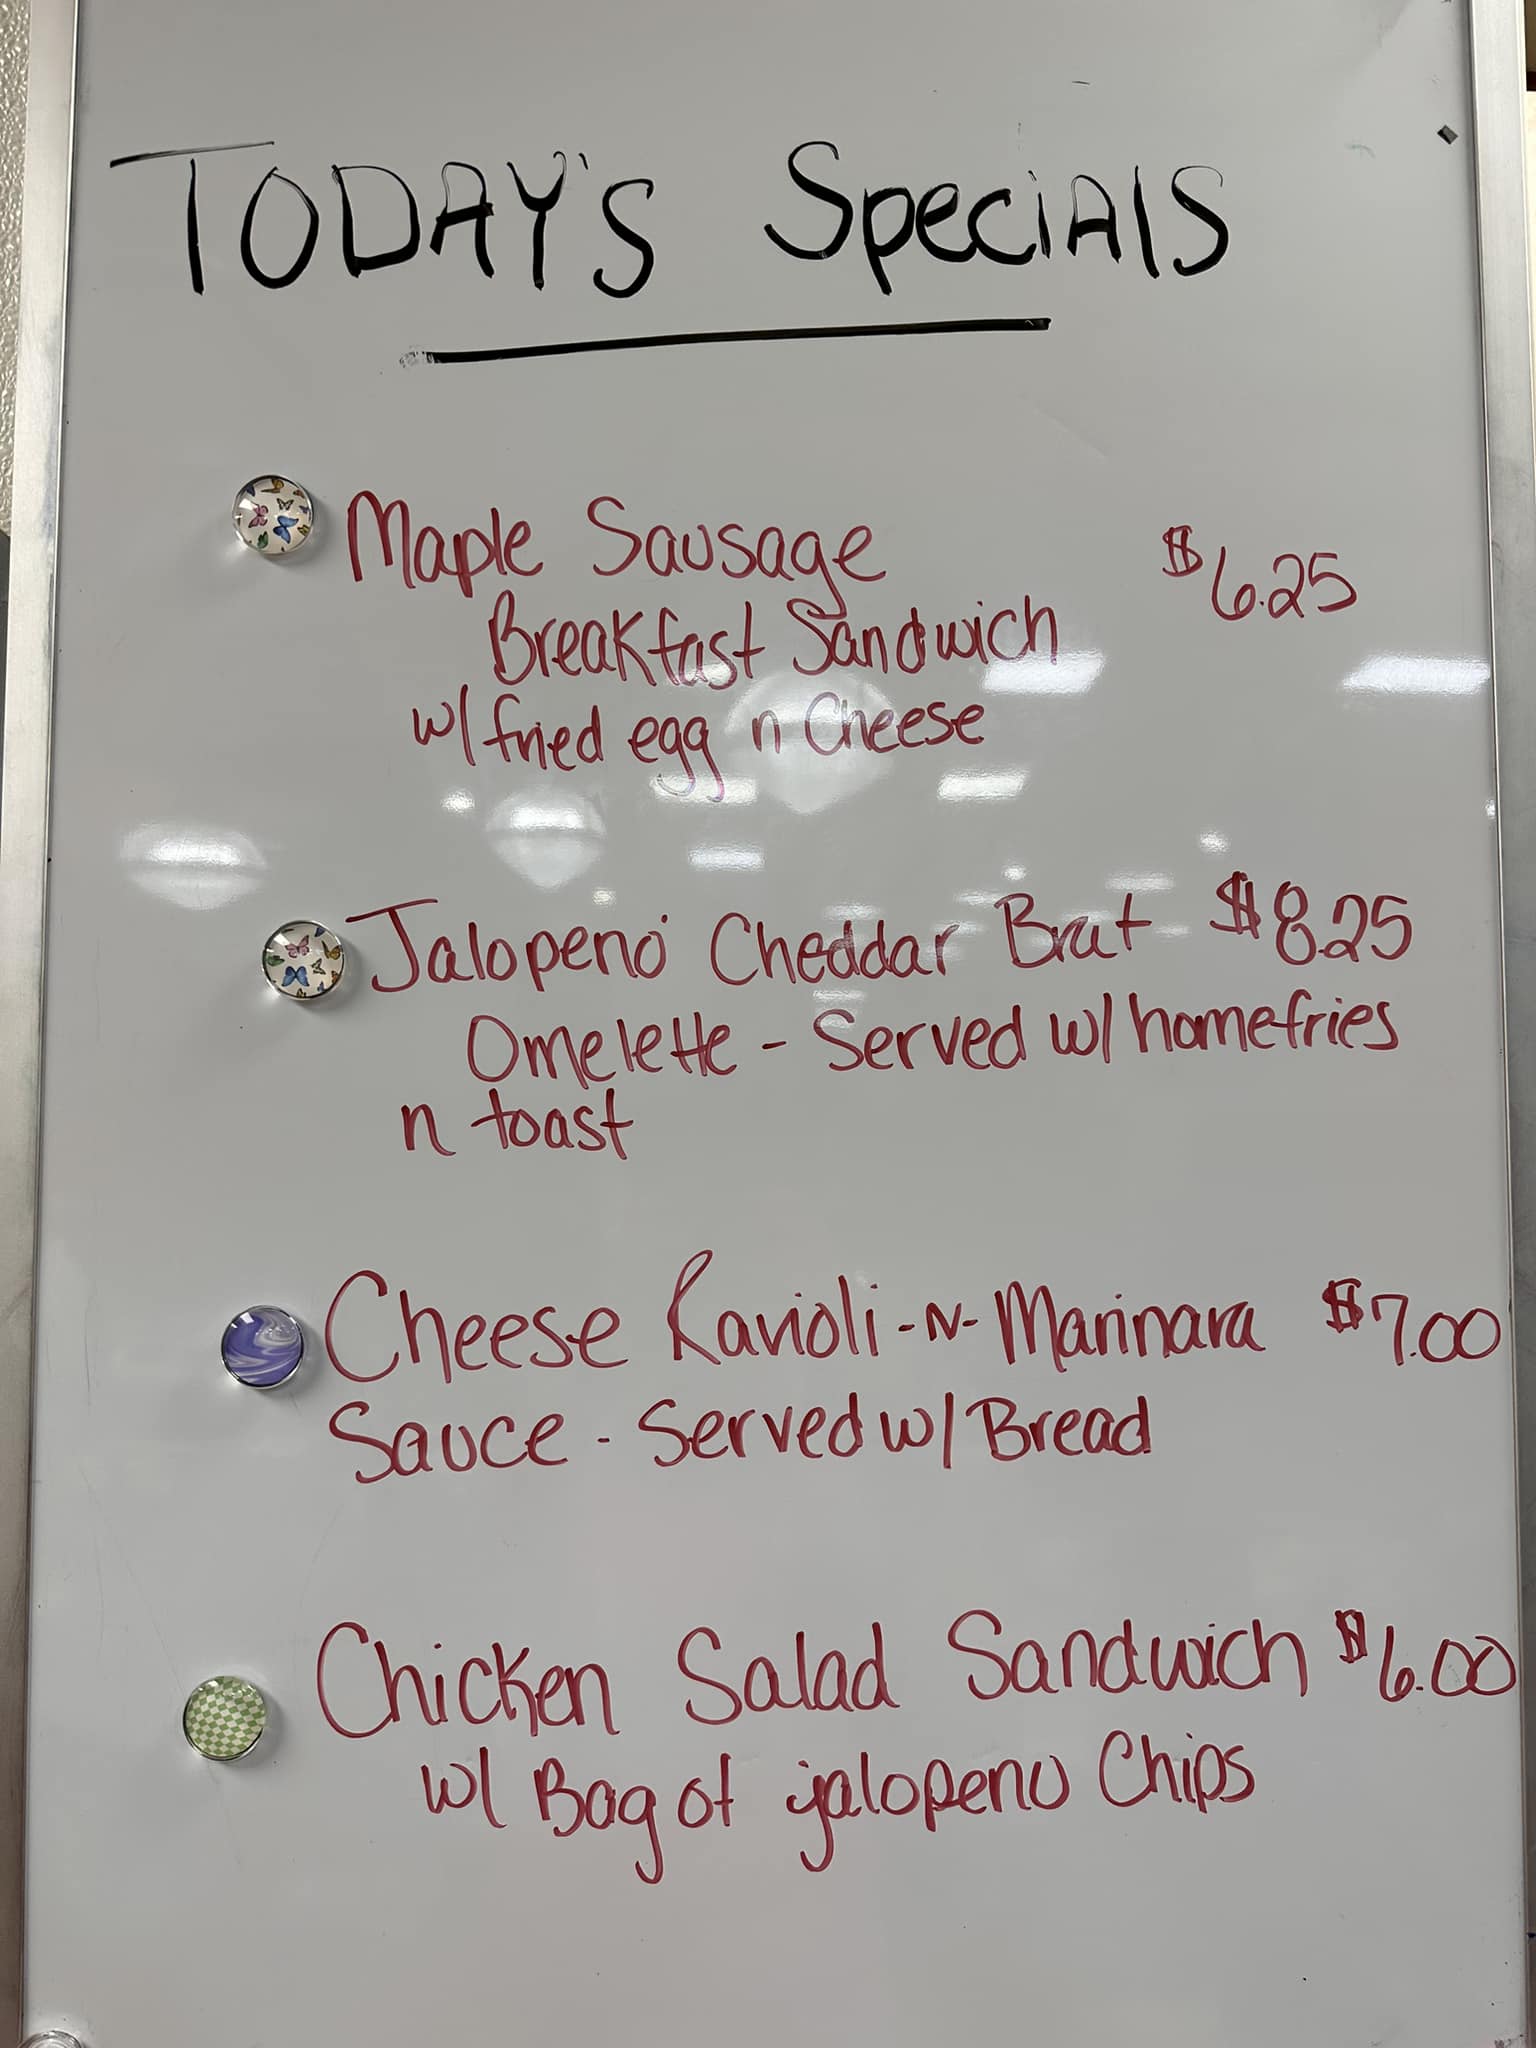 TODAY'S SpeciAlS
Maple Sausage $6.25
Breakfast Sandwich
w/ fried egg n Cheese
Jalopeno Cheddar Brat $8.25
Omelette - Served w/ homefries
n toast
Cheese Ravioli -N- Marinara $7.00
Sauce - Served w/ Bread
Chicken Salad Sandwich $6.00
w/ Bag of jalopeno Chips